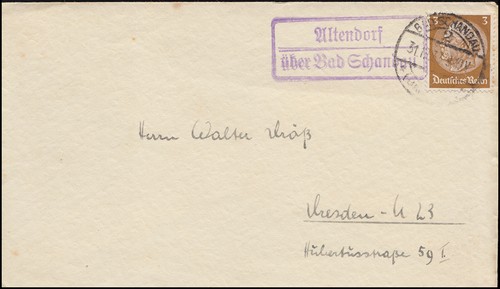 Altendorf
über Bad Schandau
BAD SCHANDAU
3 3
31.
Deutsches Reich
Herrn Walter
Dresden - N 23
Hubertusstraße 59 I.